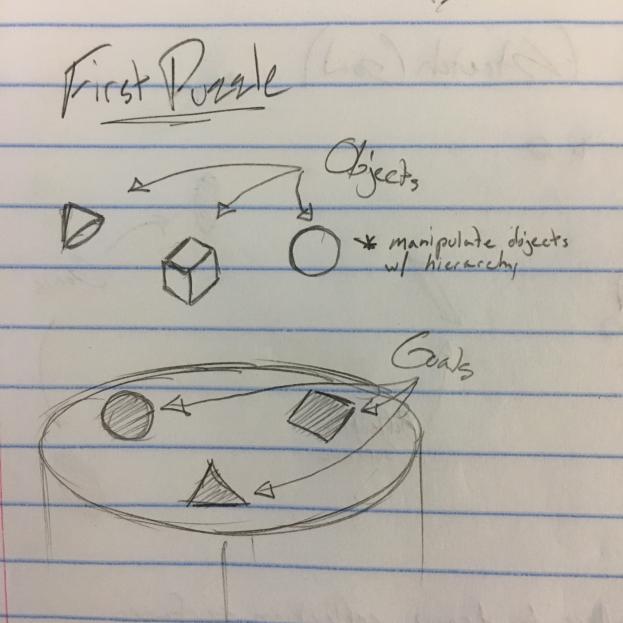 First Puzzle
Objects
* manipulate objects
w/ hierarchy
Goals